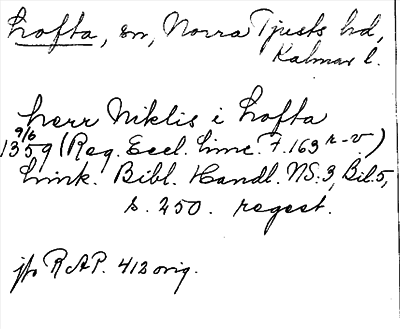 Lofta, sn, Norra Tjusts hd,
Kalmar l.
herr Niklis i Lofta
9/6
1359 (Reg. Eccl. Linc. F. 163 r-v)
Link. Bibl. Handl. NS. 3, Bil. 5,
s. 250. regest.
jfr RAP. 412 orig.